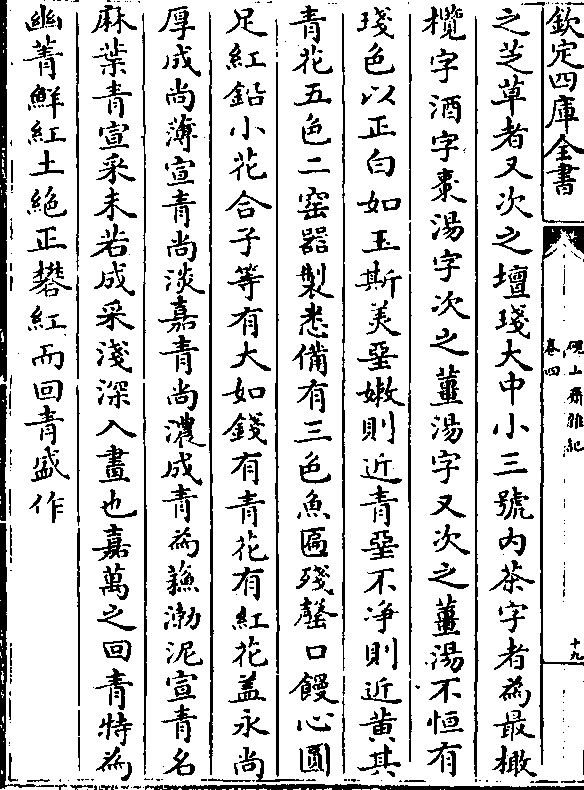 欽定四庫全書
硯山齋雜記
卷四
十九
之芝草者又次之壇琖大中小三號内茶字者為最橄
欖字酒字棗湯字次之薑湯字又次之薑湯不恒有
琖色以正白如玉斯美堊嫩則近青堊不净則近黄其
青花五色二窑器製悉備有三色魚匾琖罄口饅心圓
足紅鉛小花合子等有大如錢有青花有紅花盖永尚
厚成尚薄宣青尚淡嘉青尚濃成青為蘓渤泥宣青名
麻葉青宣采未若成采淺深入畫也嘉萬之回青特為
幽菁鮮紅土絶正礬紅而回青盛作